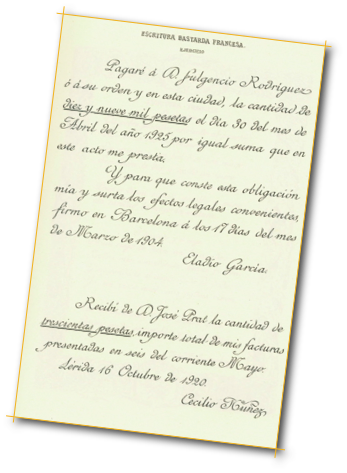 ESCRITURA BASTARDA FRANCESA.
EJERCICIO
Pagaré á D. Fulgencio Rodríguez
ó á su orden y en esta ciudad, la cantidad de
diez y nueve mil pesetas el día 30 del mes de
Abril del año 1925 por igual suma que en
este acto me presta.
Y para que conste esta obligación
mía y surta los efectos legales convenientes,
firmo en Barcelona á los 17 días del mes
de Marzo de 1904.
Eladio García.
Recibí de D. José Prat la cantidad de
trescientas pesetas, importe total de mis facturas
presentadas en seis del corriente Mayo.
Lérida 16 Octubre de 1920.
Cecilio Núñez,